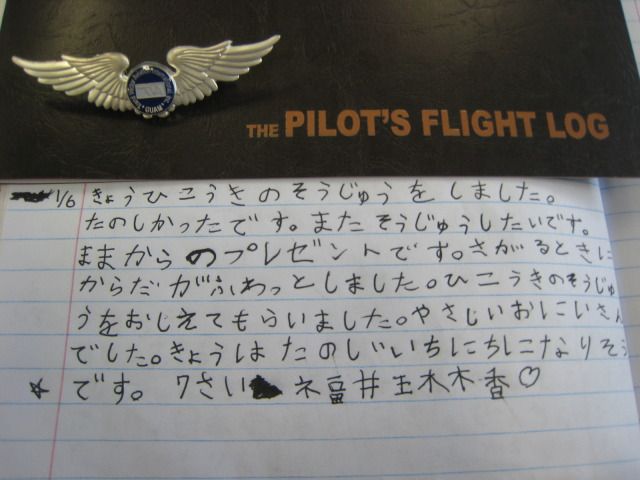 GUAM
THE PILOT'S FLIGHT LOG
1/6 きょうひこうきのそうじゅうをしました。
たのしかったです。またそうじゅうしたいです。
ままからのプレゼントです。さがるときに
からだがふわっとしました。ひこうきのそうじゅ
うをおしえてもらいました。やさしいおにいさん
でした。きょうはたのしいいちにちになりそう
☆です。7さい 福井玉木木香♡